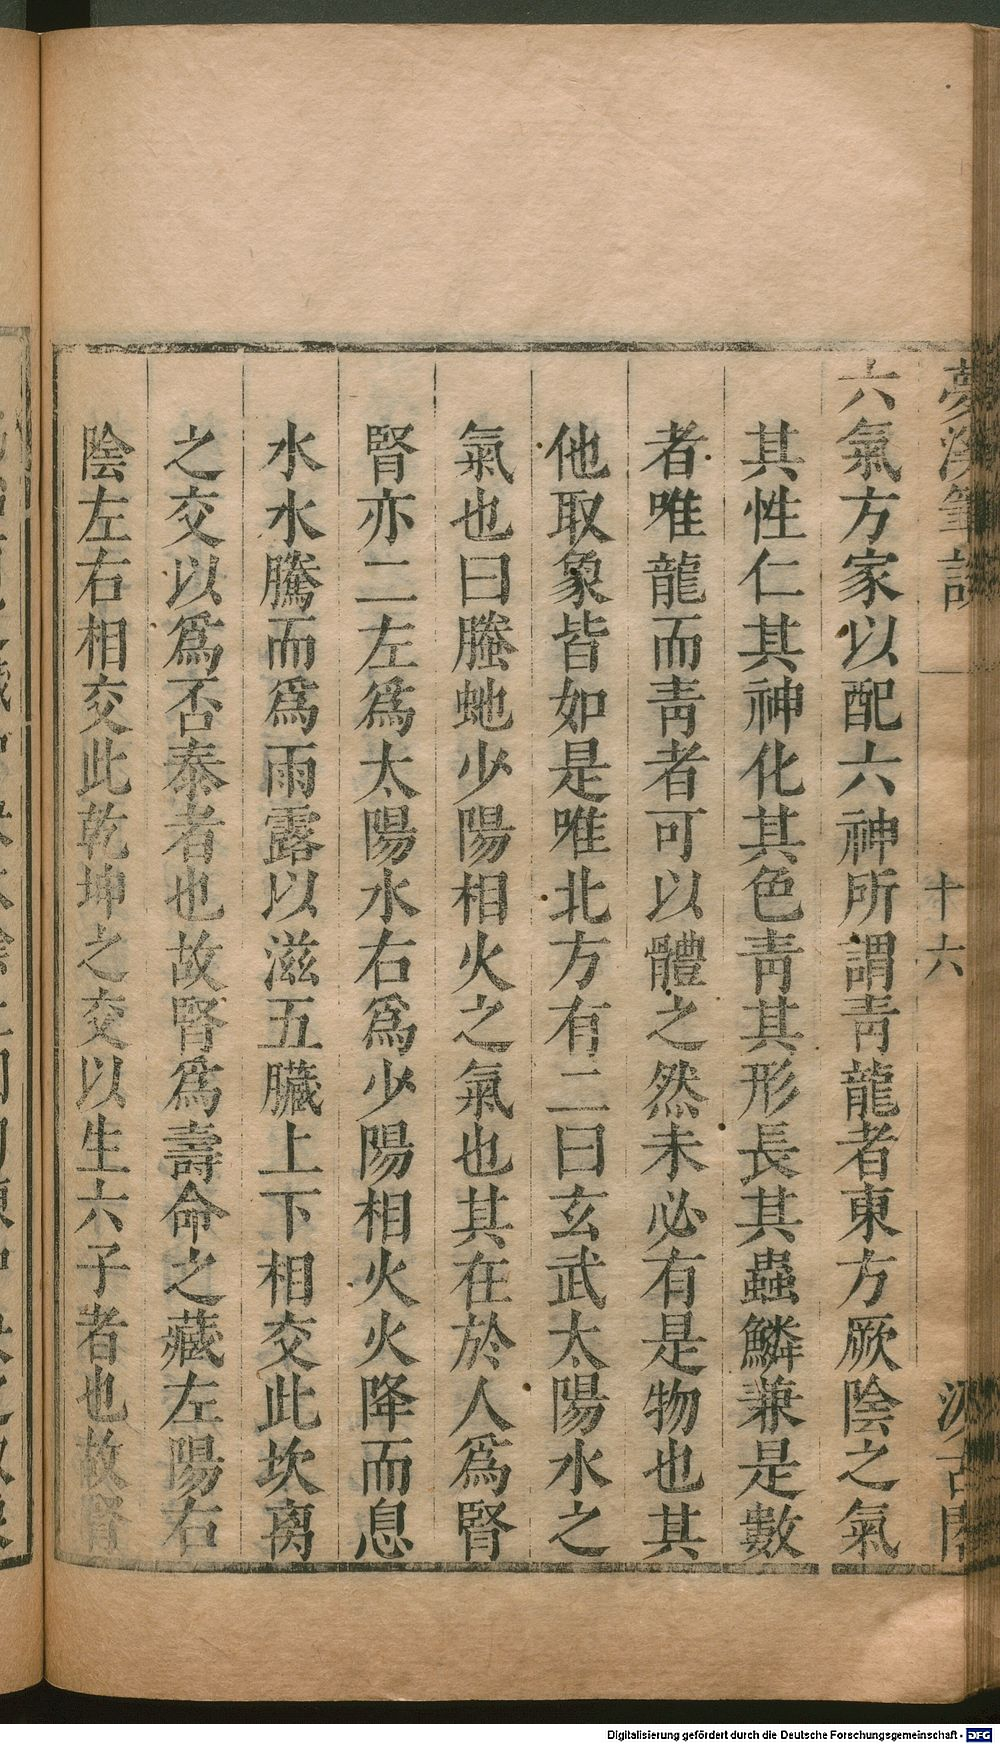 夢溪筆談
十六
汲古閣
六氣方家以配六神所謂靑龍者東方厥陰之氣
其性仁其神化其色靑其形長其蟲鱗兼是數
者唯龍而靑者可以體之然未必有是物也其
他取象皆如是唯北方有二曰玄武太陽水之
氣也曰螣虵少陽相火之氣也其在於人爲腎
腎亦二左爲太陽水右爲少陽相火火降而息
水水騰而爲雨露以滋五臟上下相交此坎离
之交以爲否泰者也故腎爲壽命之藏左陽右
陰左右相交此乾坤之交以生六子者也故腎
Digitalisierung gefördert durch die Deutsche Forschungsgemeinschaft - DFG